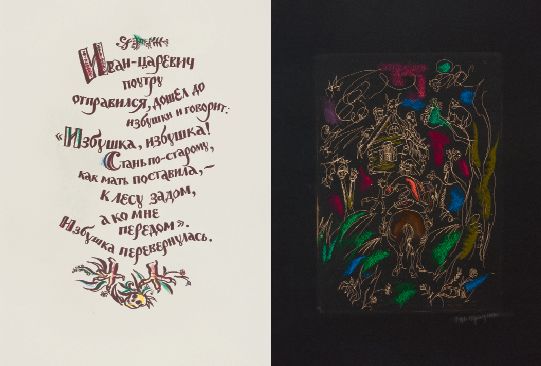 Иван-царевич
поутру
отправился, дошел до
избушки и говорит:
«Избушка, избушка!
Стань по-старому,
как мать поставила, –
к лесу задом,
а ко мне
передом».
Избушка перевернулась.